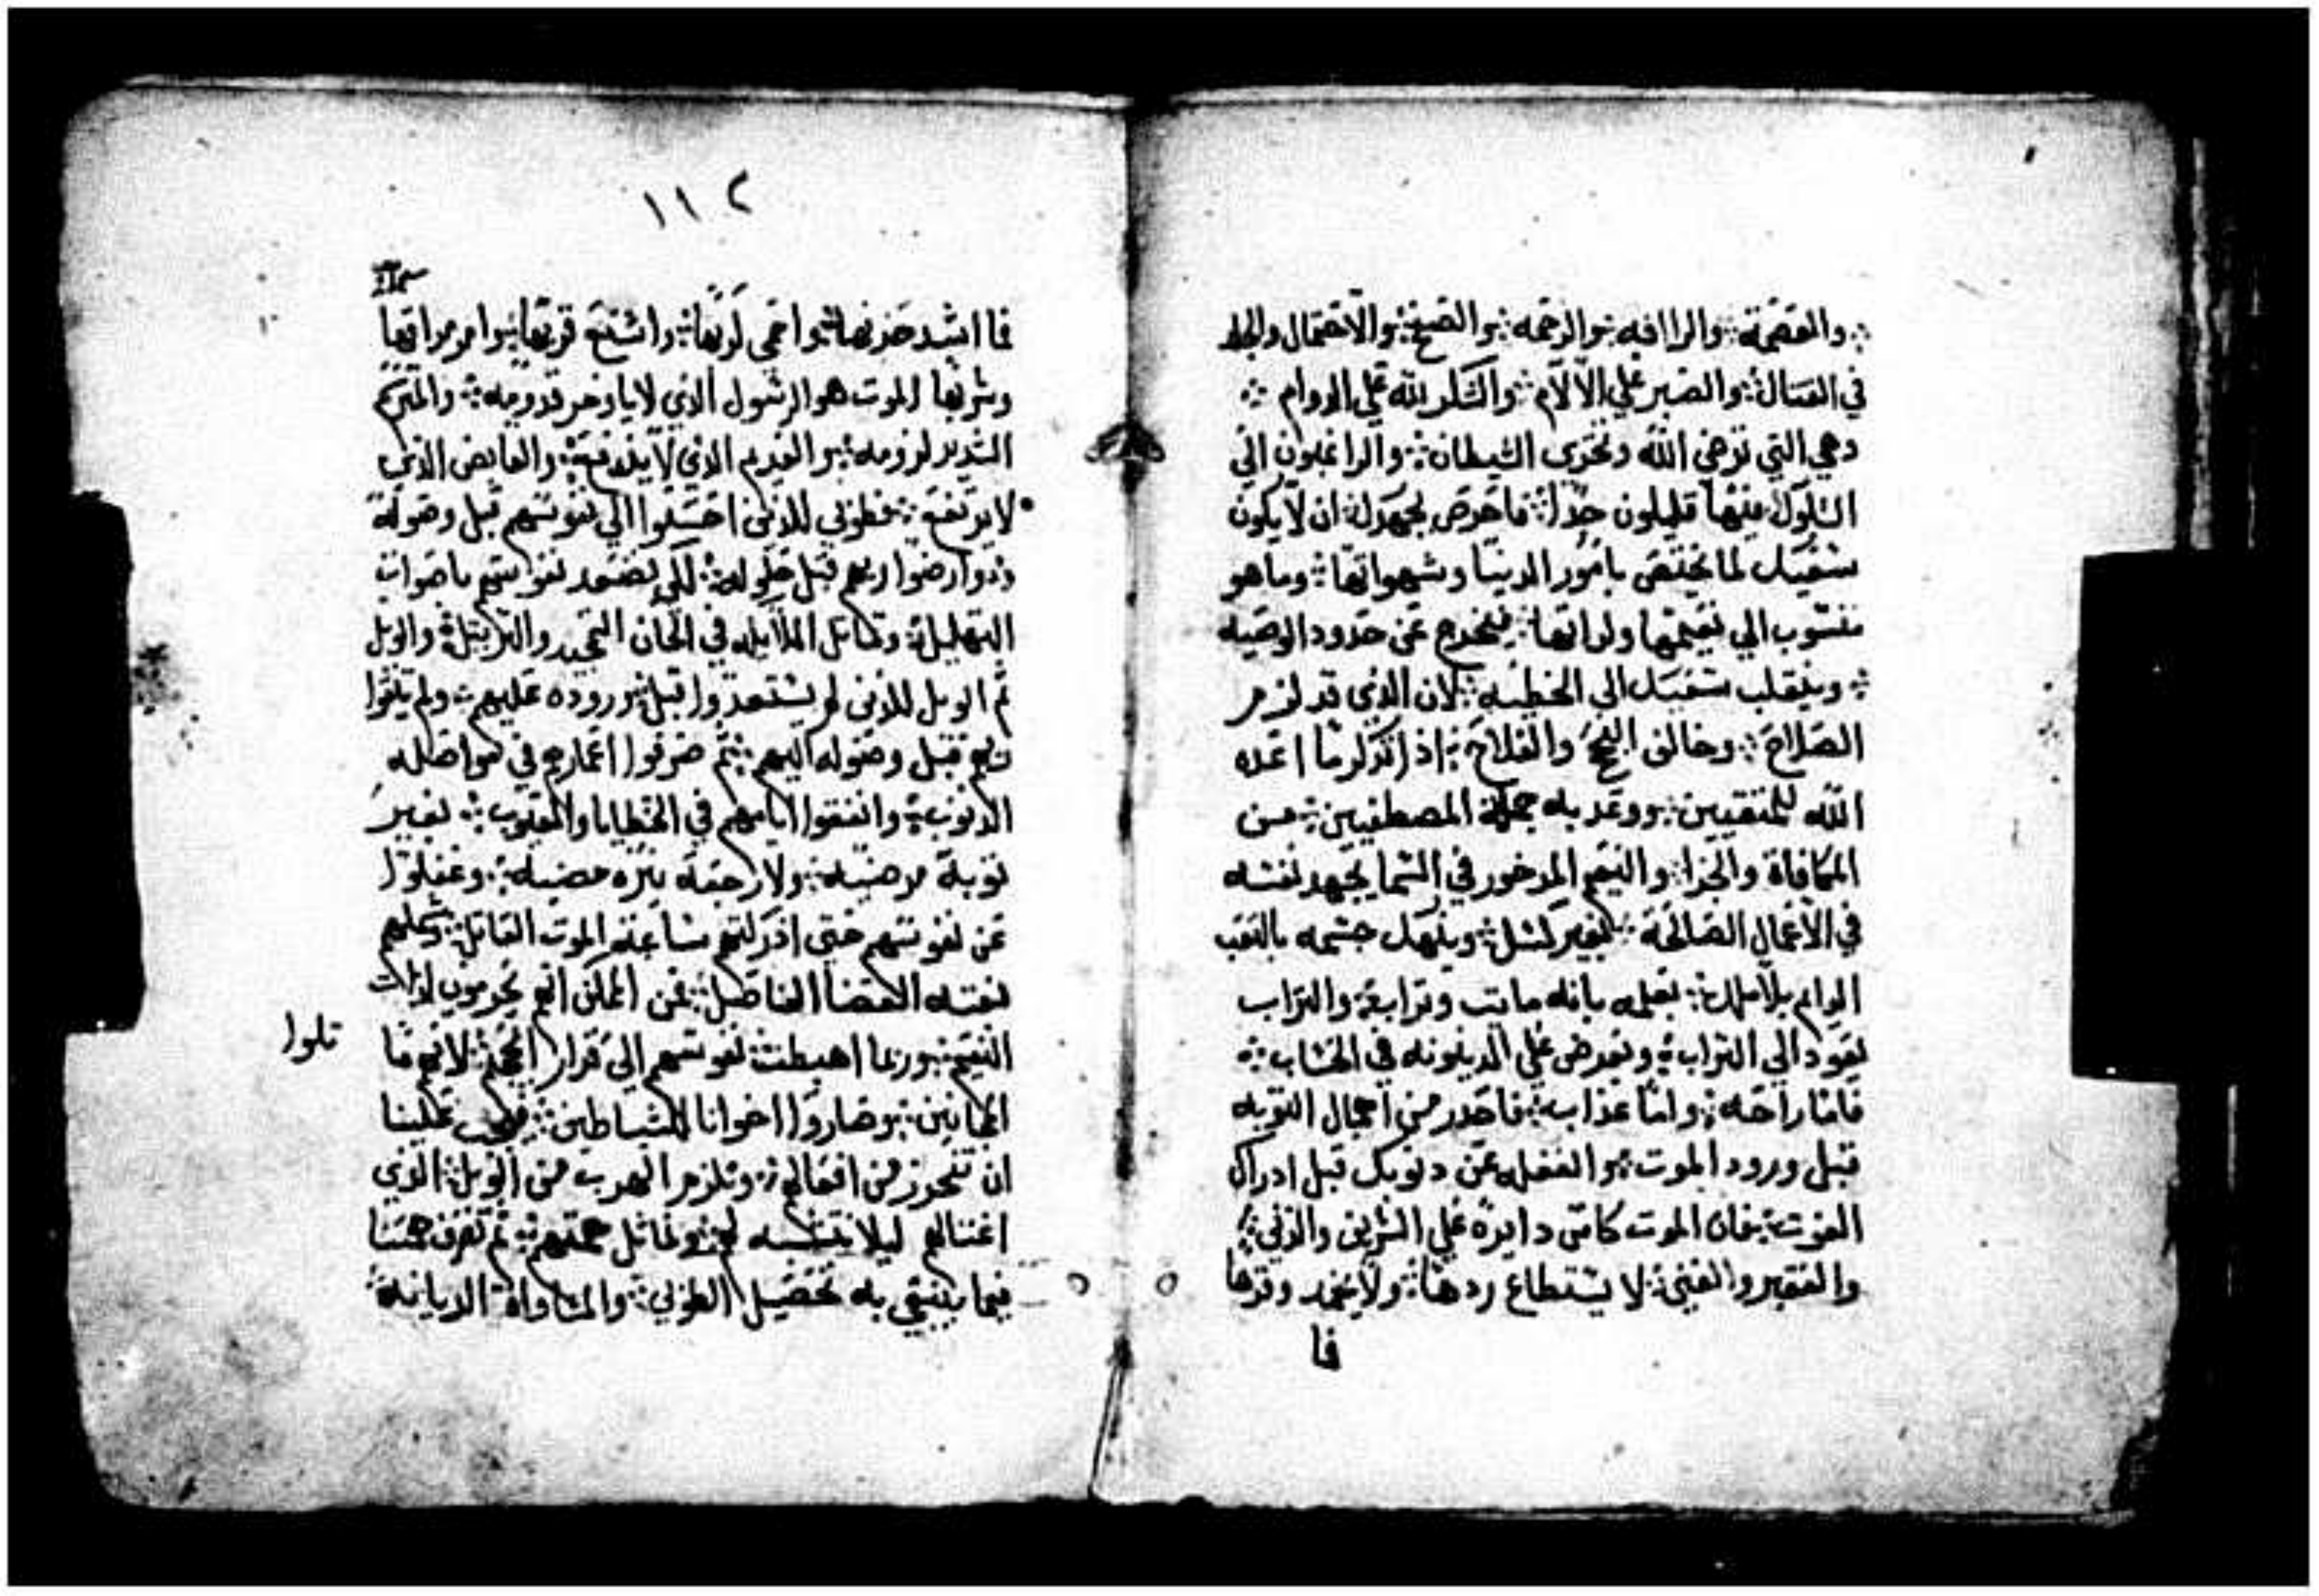 والعصمة والراافه والرحمه والصفح والاحتمال والجلد
في القتال والصبر علي الالام والشكر لله علي الدوام
وهي التي ترضي الله وتخزي الشيطان والراغبون الي
السلوك فيها قليلون جدا فاحرص بجهدك ان لا يكون
سعيك لما يختص بامور الدنيا وشهواتها وما هو
منسوب الي نعيمها ولذاتها فيخرج عن حدود الوصيه
وينقلب سعيك الي الخطيه لان الذي قد لزم
الصلاح وحالف النجح والفلاح اذا تذكر ما اعده
الله للمتقيين ووعد به جملة المصطفيين من
المكافاة والجزا والنعيم المدخور في السما يجهد نفسه
في الاعمال الصالحة بغير كسل وينهك جسمه بالتعب
الدايم بلا ملل لعلمه بانه مايت وترابة والتراب
يعود الي التراب ويعرض علي الدينونه في الحساب
فاما راحه واما عذاب فاحدر من اهمال التوبه
قبل ورود الموت والغفله عن دنوبك قبل ادراك
الفوت فان الموت كاس دايرة علي الشريف والدني
والفقير والغني لا يستطاع ردها ولا يخمد وقدها
فا
١١٢
فما اشد حزنها واعمي كربها واشنع قربها وامر مراقها
وشربها الموت هو الرسول الذي لا ياوخر قدومه والمتركم
الشديد لزومه والغريم الذي لا يندفع والقابض الذي
لا يرتفع فطوبي للذين احسنوا الي نفوسهم قبل وصوله
وارضوا ربهم قبل حلوله لكي تصعد نفوسهم باصوات
التهليل وتماثل الملايكه في الحان التمجيد والترتيل والويل
ثم الويل للذين لم يستعدوا قبل وروده عليهم ولم يتقوا
ربهم قبل وصوله اليهم ثم صرفوا اعمارهم في مواصله
الدنوب وانفقوا ايامهم في الخطايا والعيوب بغير
توبة مرضيه ولا رجعة مضيه وغفلوا
عن نفوسهم حتي ادركتهم ساعة الموت القاتل
بغته القضا الفاصل فمن الممكن انهم يحرمون لذات
النعيم وربما اهبطت نفوسهم الي قرار الجحيم لانهم ما
تلوا
المجانين وصاروا اخوانا للشياطين فيجب علينا
ان نتحرز من افعالهم ونلزم الهرب من الويل الذي
اغتالهم ليلا نماثل همتهم ثم نصرف همتنا
فيما ينبغي به تحصيل الطوبي والمساواة الديانيه